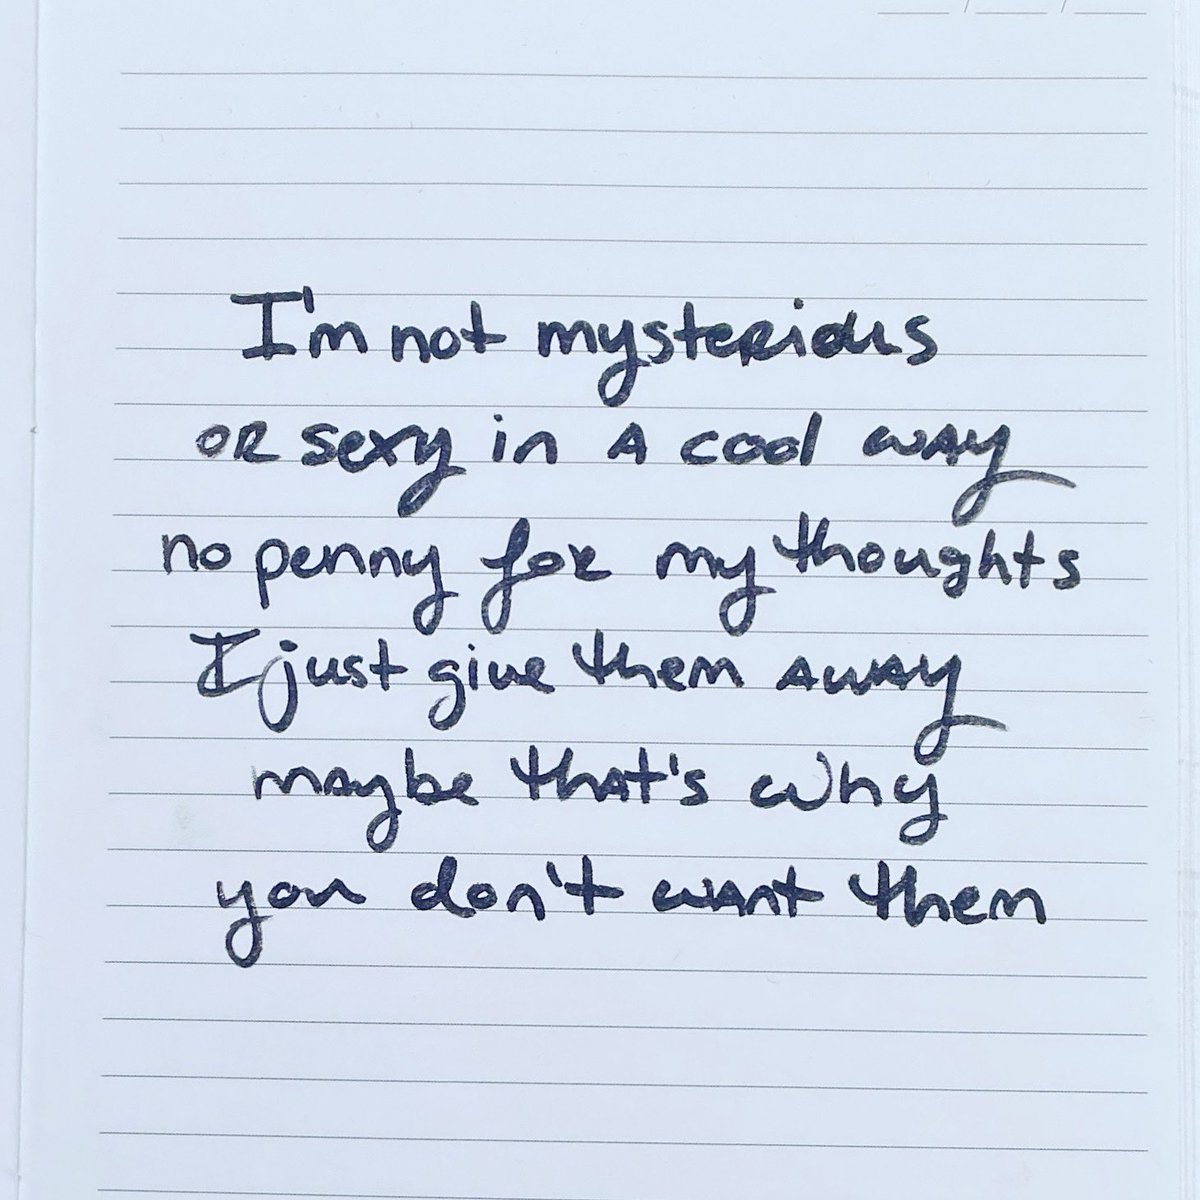 I'm not mysterious
or sexy in a cool way
no penny for my thoughts
I just give them away
maybe that's why
you don't want them